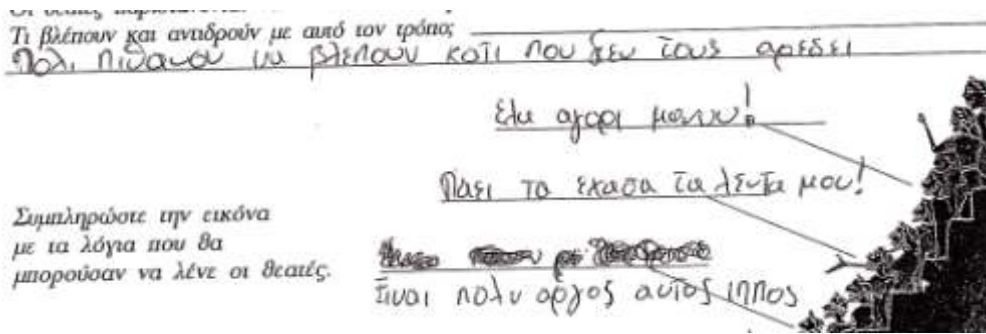 Τι βλέπουν και αντιδρούν με αυτό τον τρόπο;
Πολι πιθανον να βλεπουν κατι που δεν τους αρεσει
Ελα αγορι μουυυ!
Παει το εχασα τα λευτα μου!
Συμπληρώστε την εικόνα
με τα λόγια που θα
μπορούσαν να λένε οι θεατές.
Ειναι πολυ αργος αυτος ιππος